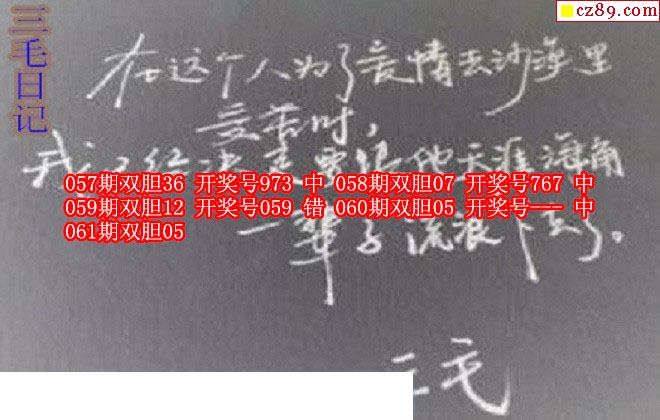 cz89.com
三毛日记
在这个人为了爱情去沙漠里
受苦时，
我心里已经决定要跟他天涯海角
057期双胆36 开奖号973 中 058期双胆07 开奖号767 中
059期双胆12 开奖号059 错 060期双胆05 开奖号--- 中
061期双胆05
一辈子流浪下去了。
三毛